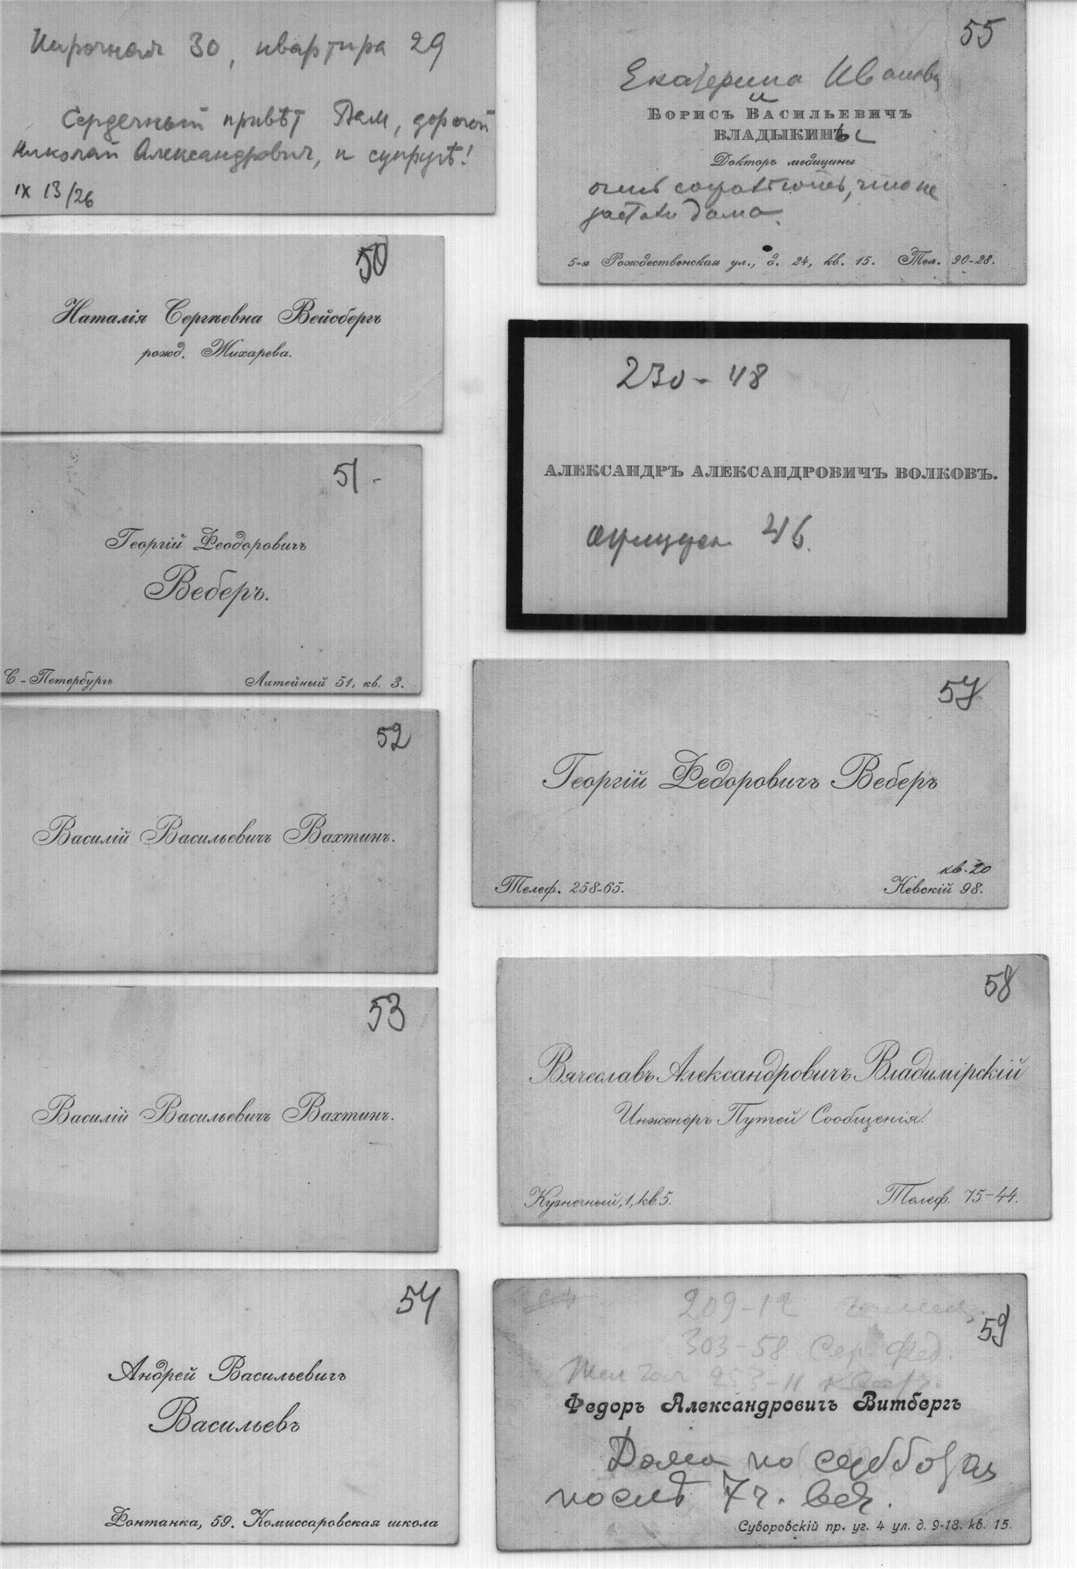 Кирочная 30, квартира 29
Сердечный привѣт Вам, дорогой
Николай Александрович, и супругѣ!
IX 13/26
50
Наталія Сергѣевна Вейсбергъ
рожд. Михарева.
51-
Георгій Феодоровичъ
Веберъ.
С-Петербургъ
Литейный 51, кв. 3.
52
Василій Васильевичъ Вахтинъ.
53
Василій Васильевичъ Вахтинъ.
54
Андрей Васильевичъ
Васильевъ
Фонтанка, 59. Комиссаровская школа
55
Екатерина Ивановна
и
Борисъ Васильевичъ
ВЛАДЫКИНЫ
Докторъ медицины
очень сожалѣютъ, что не
застали дома.
5-я Рождественская ул., д. 24, кв. 15. Тел. 90-28.
230-48
АЛЕКСАНДРЪ АЛЕКСАНДРОВИЧЪ ВОЛКОВЪ.
46.
57
Георгій Федоровичъ Веберъ
кв. 20
Телеф. 258-65.
Невскій 98.
58
Вячеславъ Александровичъ Владимірскій
Инженеръ Путей Сообщенія.
Кузнечный, 1, кв. 5.
Телеф. 75-44.
209-12
59
303-58 Сер. Фед.
253-11
Федоръ Александровичъ Витбергъ
Дома по субботам
послѣ 7 ч. веч.
Суворовскій пр. уг. 4 ул. д. 9-18. кв. 15.